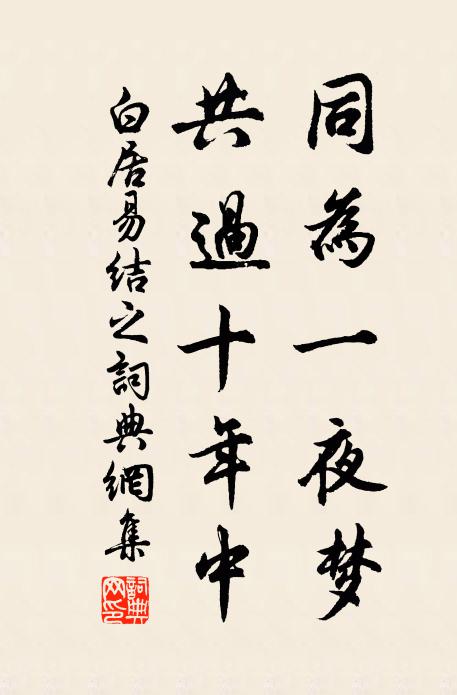 同為一夜梦
共過十年中
白居易结之詞典網集
詞典网印